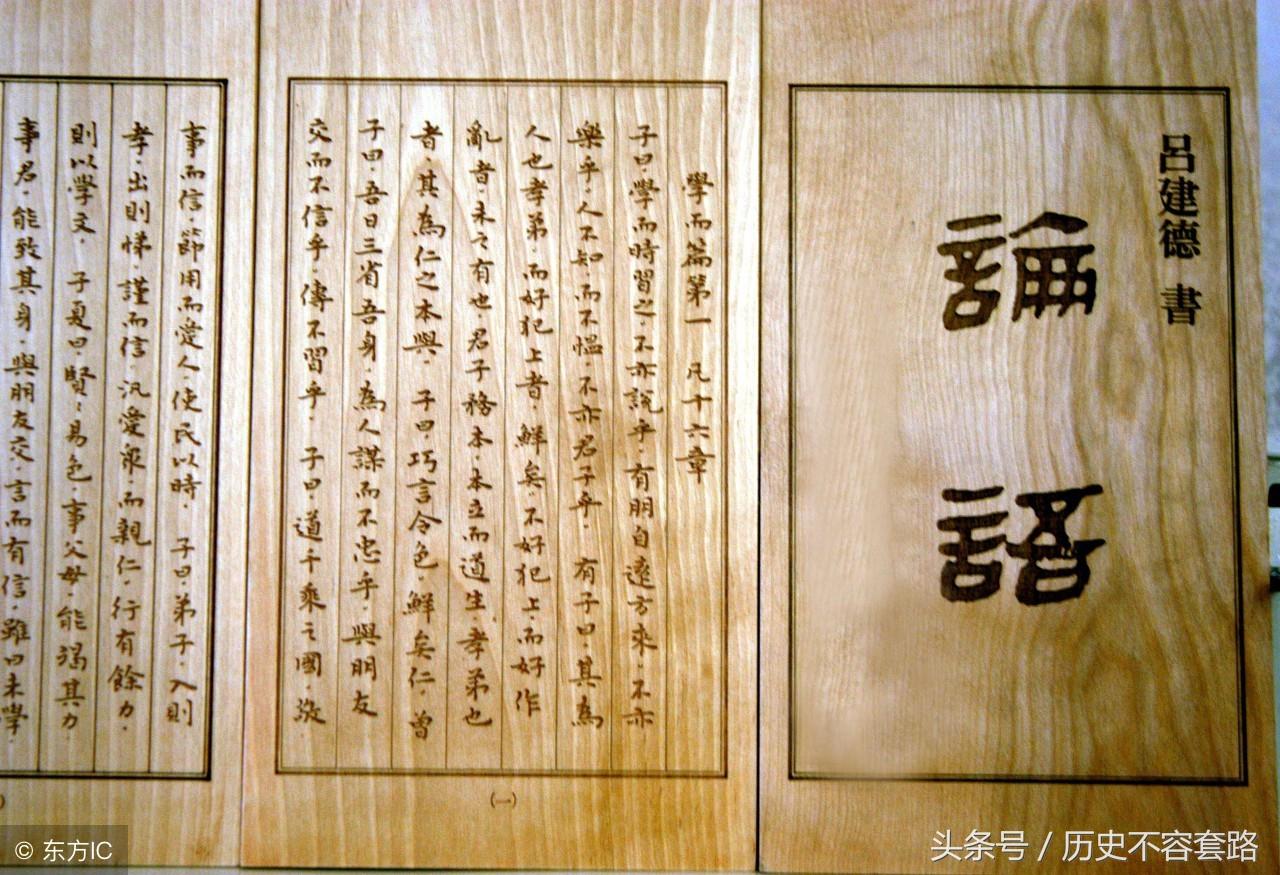 呂建德 書
論語
學而篇第一 凡十六章
子曰．學而時習之．不亦說乎．有朋自遠方來．不亦
樂乎．人不知．而不慍．不亦君子乎． 有子曰．其為
人也孝弟．而好犯上者．鮮矣．不好犯上．而好作
亂者．未之有也．君子務本．本立而道生．孝弟也
者．其為仁之本與． 子曰．巧言令色．鮮矣仁．曾
子曰．吾日三省吾身．為人謀而不忠乎．與朋友
交而不信乎．傳不習乎． 子曰．道千乘之國．敬
(一)
事而信．節用而愛人．使民以時． 子曰．弟子．入則
孝．出則悌．謹而信．汎愛眾．而親仁．行有餘力．
則以學文． 子夏曰．賢〻易色．事父母．能竭其力
事君．能致其身．與朋友交．言而有信．雖曰未學．
© 东方IC
头条号 / 历史不容套路